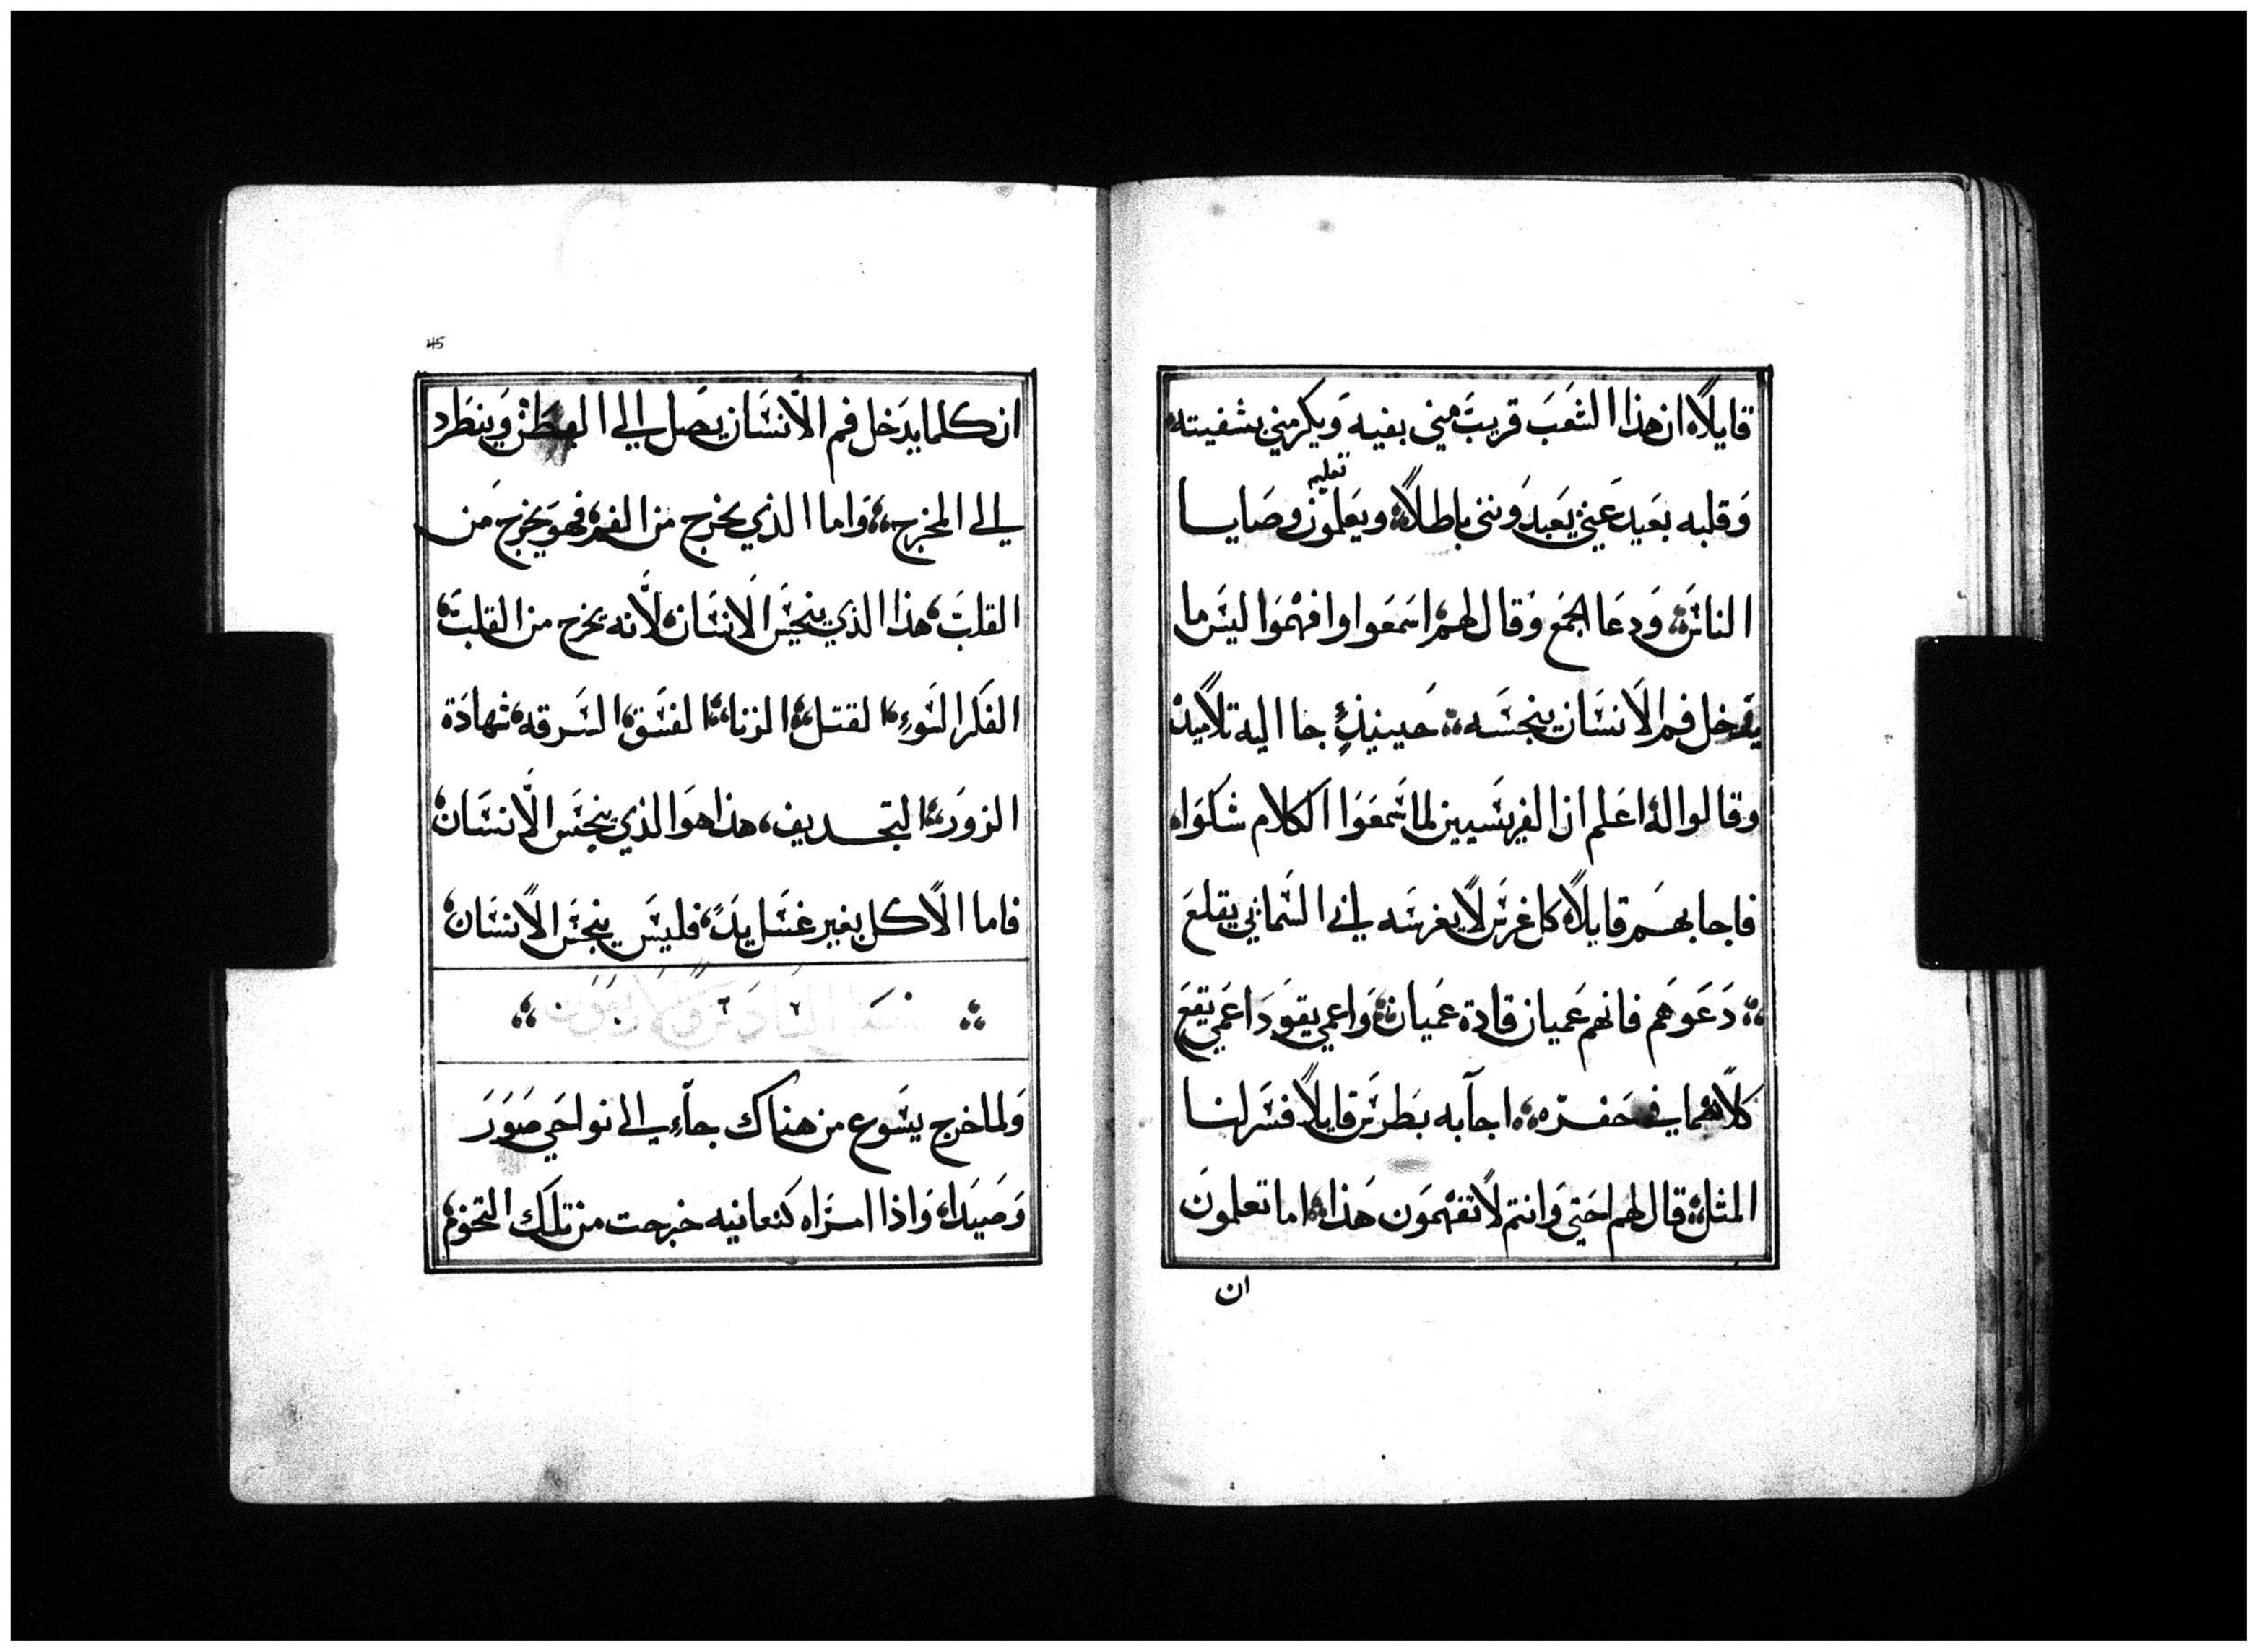 قايلاً ان هذا الشعب قريب مني بفيه ويكرمني بشفيته
تعليم
وقلبه بعيد عني يعبدونني باطلاً ويعلمون وصايا
الناس ودعا الجمع وقال لهم اسمعوا وافهموا ليس ما
يدخل فم الانسان ينجسه حينيذٍ جا اليه تلاميذ
وقالوا له اعلم ان الفريسيين لما سمعوا الكلام شكواه
فاجابهم قايلاً كل غرس لا يغرسه ابي السماني يقلع
دعوهم فانهم عميان قادة عميان واعمي يقود اعمي يقع
كلاهما في حفره اجابه بطرس قايلاً فسر لنا
المثل قال لهم حتي وانتم لا تفهمون هذا اما تعلمون
ان
45
ان كلما يدخل فم الانسان يصل الي البطن وينطرد
الي المخرج واما الذي يخرج من الفم فهو يخرج من
القلب هذا الذي ينجس الانسان لانه يخرج من القلب
الفكر السوء القتل الزنا الفسق السرقه شهادة
الزور التجديف هذا هو الذي ينجس الانسان
فاما الاكل بغير غسل يد فليس ينجس الانسان
ولما خرج يسوع من هناك جاء الي نواحي صور
وصيدا واذا امراه كنعانيه خرجت من تلك التخوم